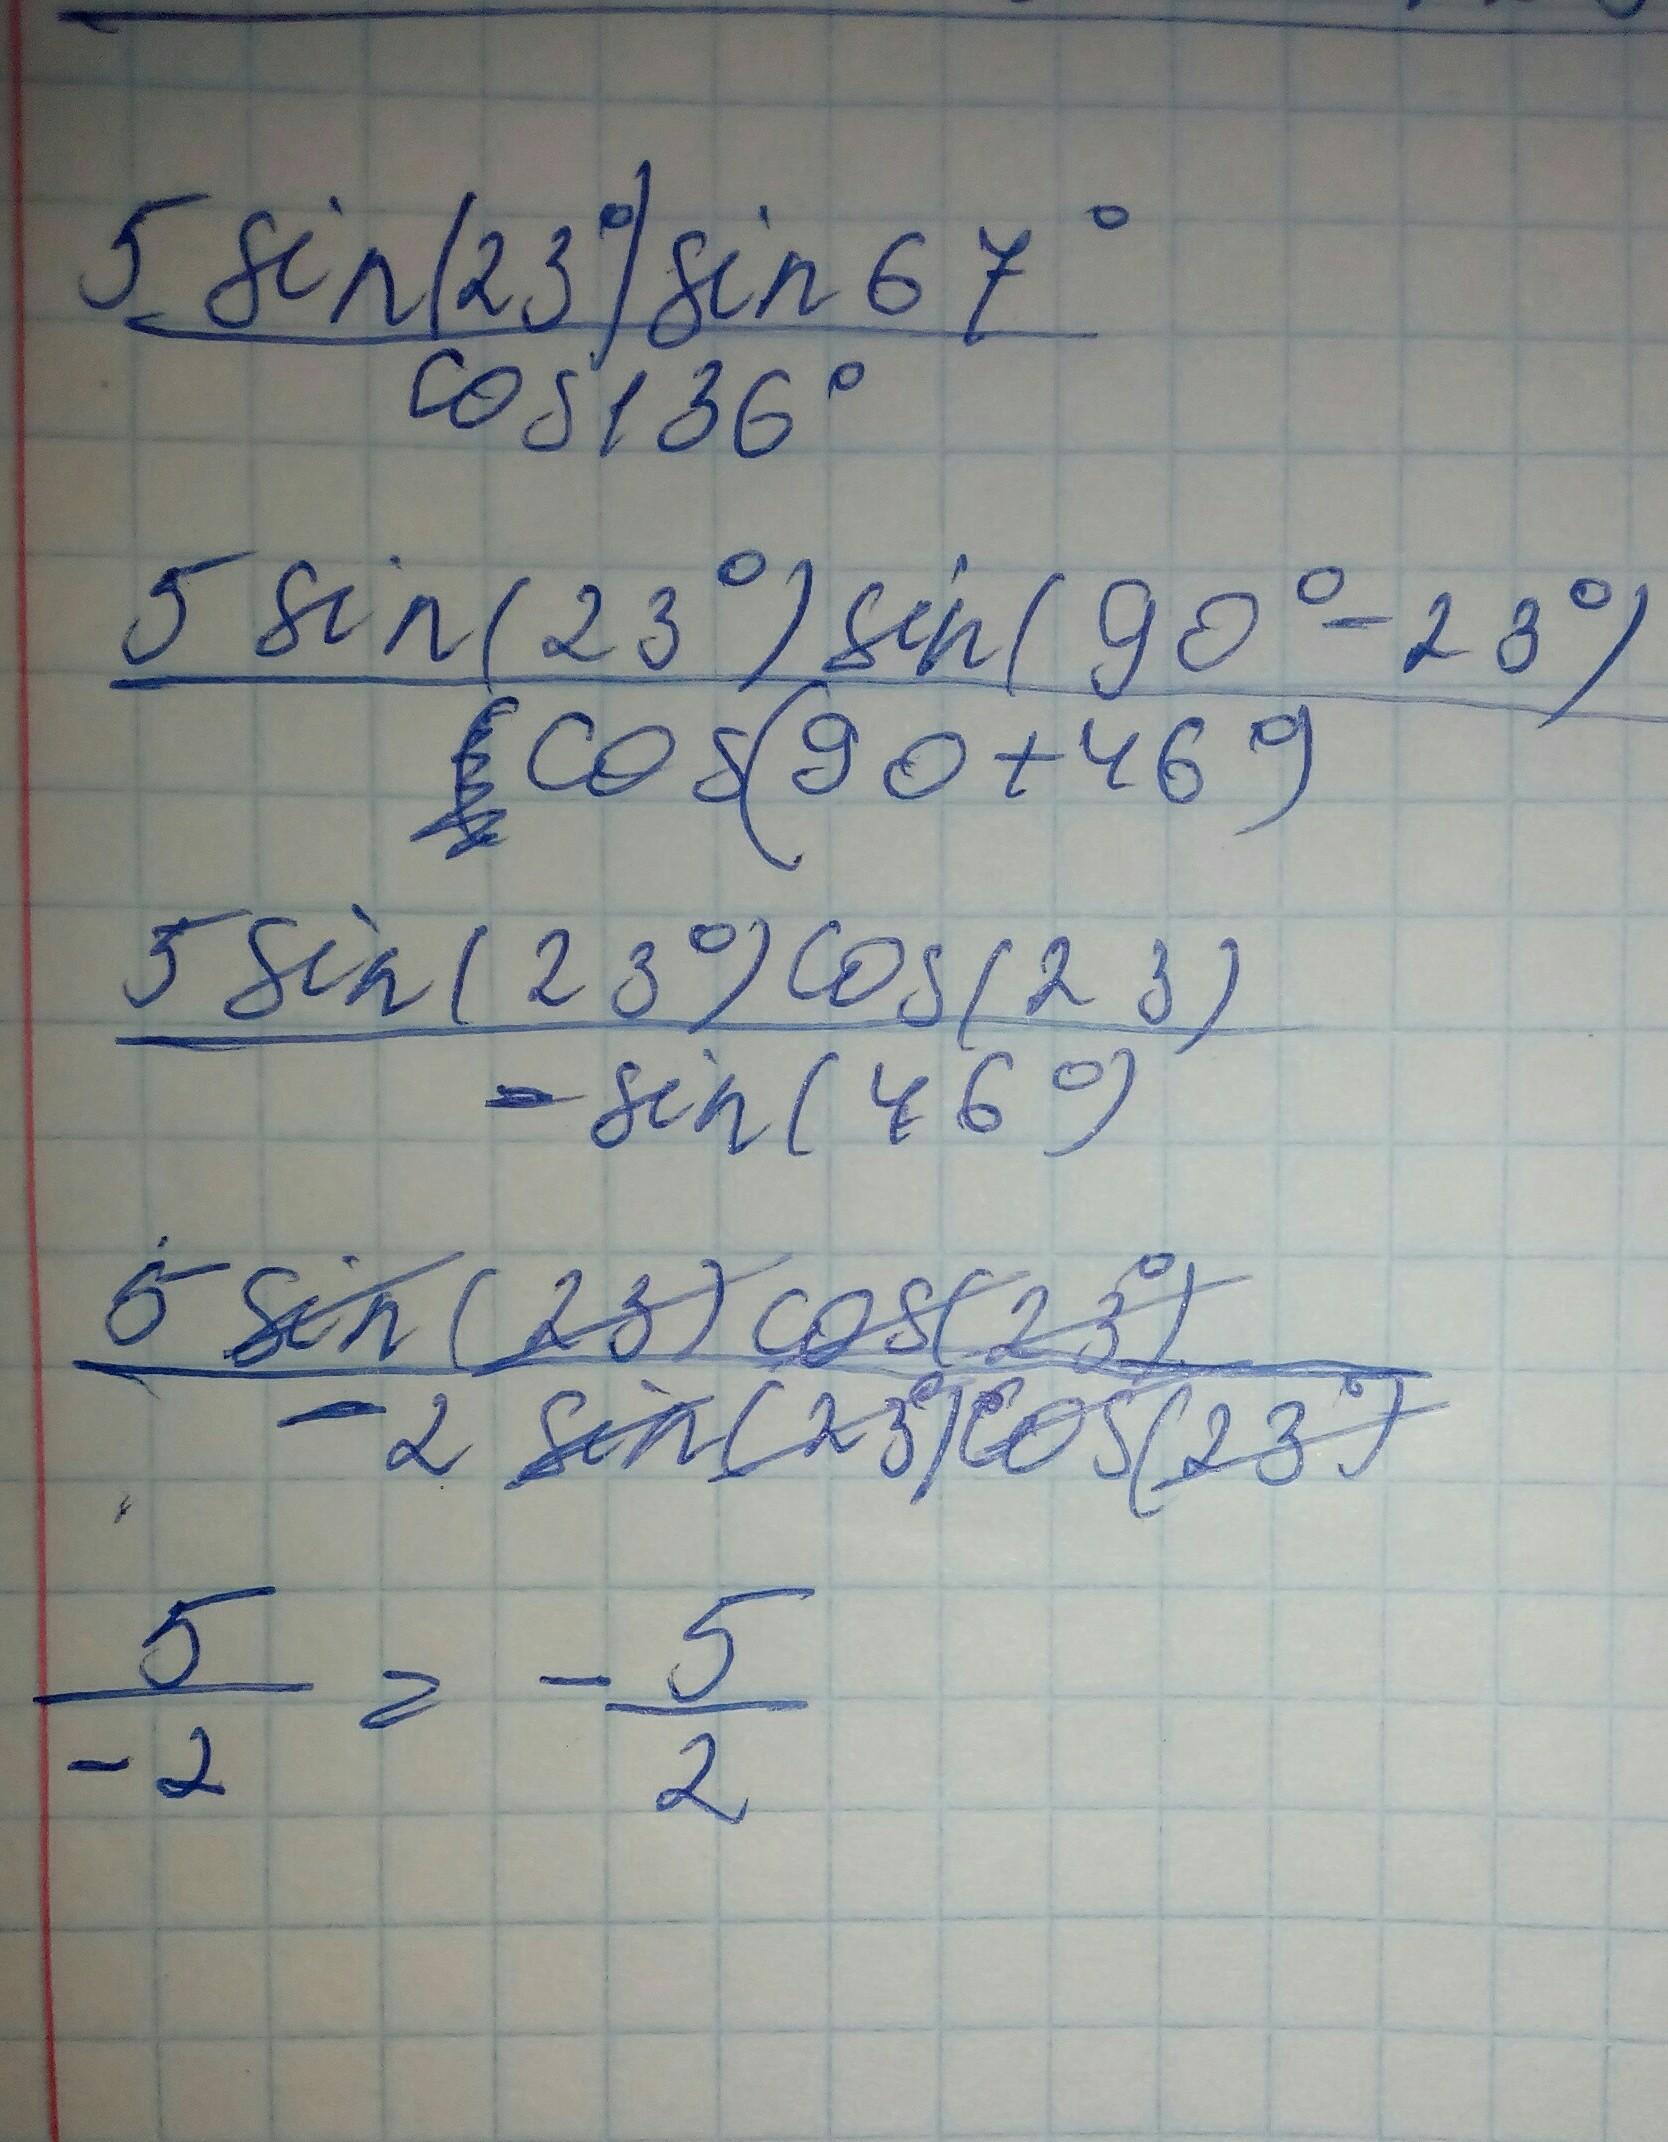 5 sin(23°) sin 67°
cos 136°
5 sin(23°) sin(90° - 23°)
cos(90 + 46°)
5 sin(23°) cos(23)
- sin(46°)
5 sin(23) cos(23°)
- 2 sin(23°) cos(23°)
5 = - 5
-2 2